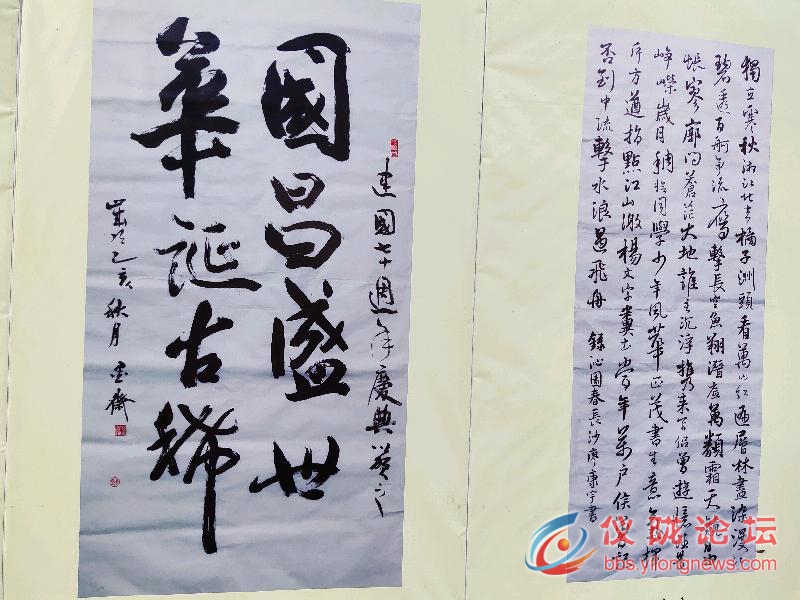 建國七十週年慶典
國昌盛世
華誕古稀
歲次乙亥秋月
獨立寒秋湘江北去橘子洲頭看萬山紅遍層林盡染漫江
碧透百舸爭流鷹擊長空魚翔潛底萬類霜天競自由
悵寥廓問蒼茫大地誰主沉浮攜來百侶曾遊憶往昔
崢嶸歲月稠恰同學少年風華正茂書生意氣揮
斥方遒指點江山激揚文字糞土當年萬戶侯曾記
否到中流擊水浪遏飛舟 錄沁園春長沙廖康宇書
仪陇论坛
bbs.yilongnews.com